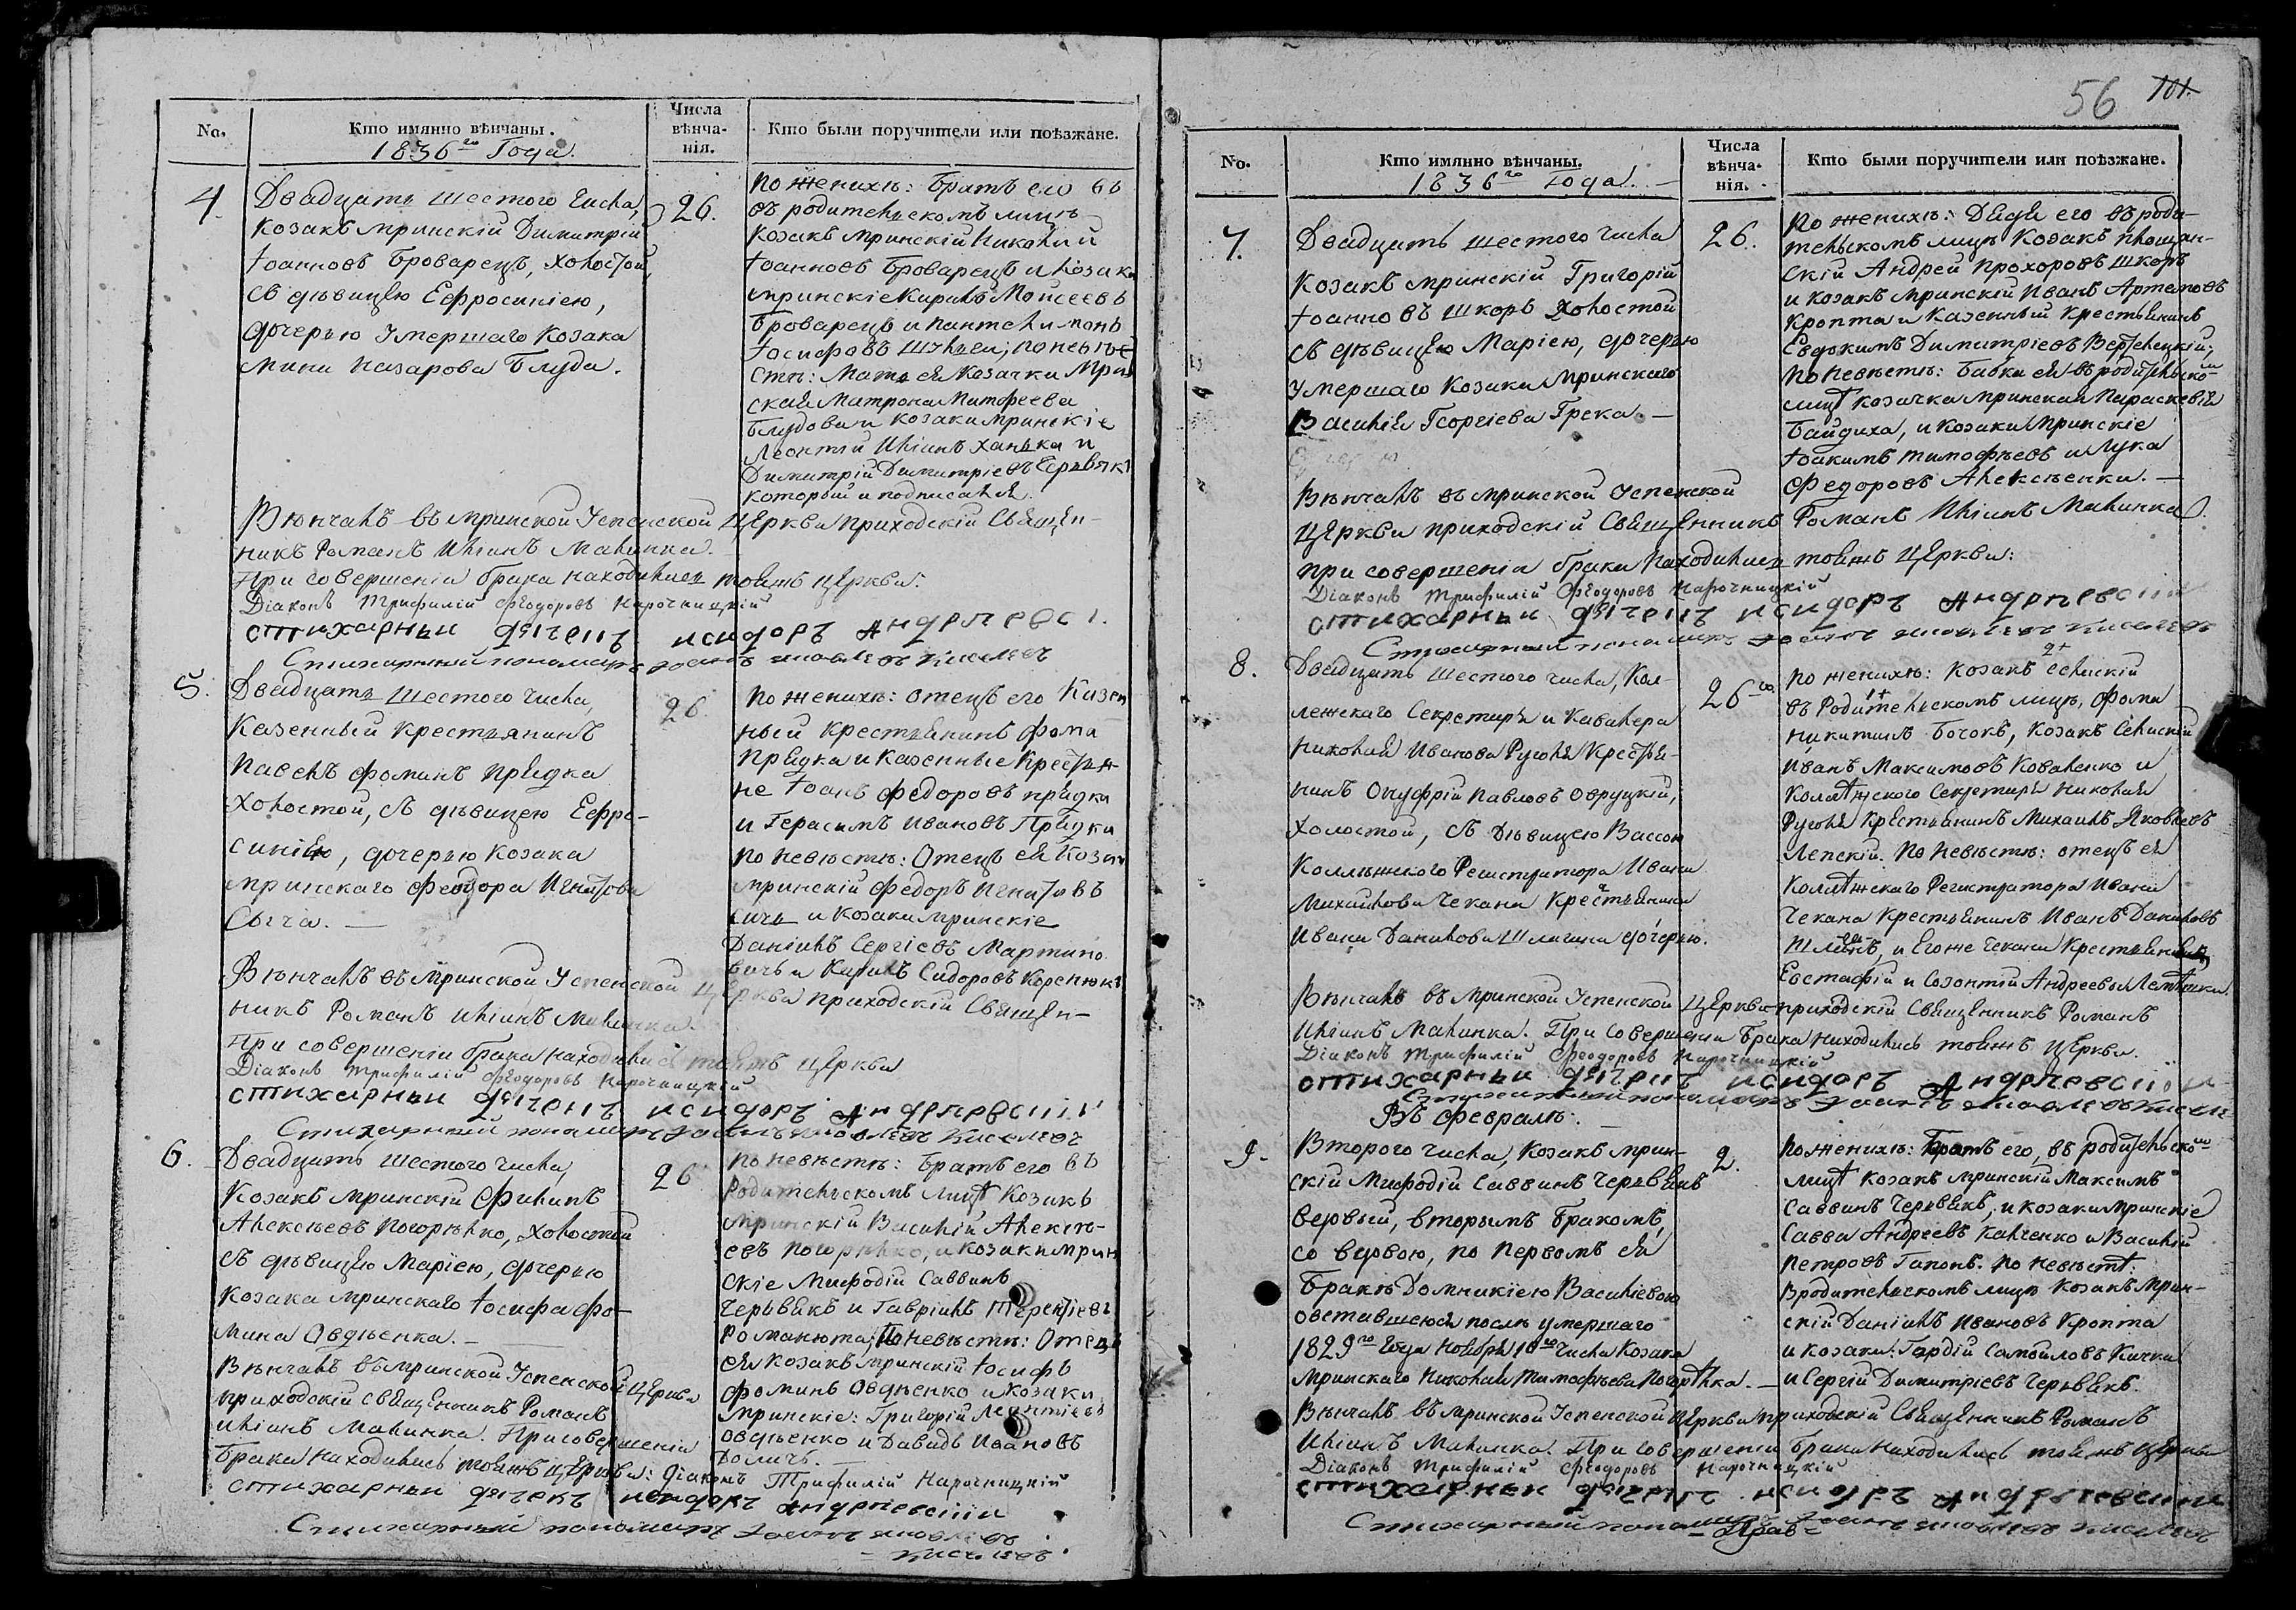 No.
Кто имянно вѣнчаны.
1836го Года.
Числа
вѣнча-
нія.
Кто были поручители или поѣзжане.
4.
Двадцать шестого числа,
козакъ мринскій Димитрій
Іоанновъ Броварецъ, холостой,
съ дѣвицею Ефросиніею,
дочерью умершаго козака
Мины Назарова Блуда.
26.
По женихѣ: Братъ его въ
въ родительскомъ лицѣ
козакъ мринскій Николай
Іоанновъ Броварецъ и козаки
мринскіе Кирилъ Моисеевъ
Броварецъ и Пантелимонъ
Іосифовъ; по невѣ-
стѣ: Мать ея козачка Мрин
ская Матрона
Блудова и козаки мринскіе
Леонтій Иліинъ Ханька и
Димитрій Димитріевъ Червякъ
который и подписался.
Вѣнчалъ въ мринской Успенской церкви приходскій Священ-
никъ Романъ Иліинъ Малинка.
При совершеніи брака находились тояжъ церкви:
Діаконъ Трифилій Ѳеодоровъ Нарочницкій
стихарный дячекъ исидоръ Андріевскі.
Стихарный пономарь
5.
Двадцать шестого числа,
казенный крестьянинъ
Павелъ Фоминъ Прядка
холостой, съ дѣвицею Ефро-
синіею, дочерью козака
мринскаго Феодора Игнатова
Сыча. —
26.
По женихѣ: отецъ его казен
ный крестьянинъ Фома
Прядка и казенные крестья-
не Іоанъ Федоровъ Прядка
и Герасимъ Ивановъ Прядка
по невѣстѣ: Отецъ ея козак
мринскій Федоръ Игнатовъ
Сичь и козаки мринскіе
Даніилъ Сергіевъ Мартино
вичь и Кирилъ Сидоровъ Коренюкъ
Вѣнчалъ въ мринской Успенской церкви приходскій Священ-
никъ Романъ Иліинъ Малинка.
При совершеніи брака находились тояжъ церкви
Діаконъ Трифилій Ѳеодоровъ Нарочницкій
стихарный дячекъ исидоръ Андріевскій
Стихарный пономарь
6.
Двадцать шестого числа,
козакъ мринскій Филипъ
Алексѣевъ Погорѣлко, холостой
съ дѣвицею Маріею, дочерью
козака мринскаго Іосифа Фо-
мина Овдѣенка. —
26
По невѣстѣ: Братъ его въ
родительскомъ лицѣ козакъ
мринскій Василій Алексѣ-
евъ Погорѣлко, и козаки мрин
скіе Мифодій Саввинъ
Червякъ и Гавріилъ Терентіевъ
Романюта; По невѣстѣ: Отецъ
ея козакъ мринскій Іосифъ
Фоминъ Овдѣенко и козаки
мринскіе: Григорій Леонтіевъ
Овдѣенко и Давидъ Ивановъ
Вѣнчалъ въ мринской Успенской церкви
приходскій священникъ Романъ
Иліинъ Малинка. При совершеніи
брака находились тояжъ церкви: Діаконъ
Трифилій Нарочницкій
стихарный дячекъ исидоръ андріевскій
Стихарный пономарь
56 101.
No.
Кто имянно вѣнчаны.
1836го Года. —
Числа
вѣнча-
нія.
Кто были поручители или поѣзжане.
7.
Двадцать шестого числа
козакъ мринскій Григорій
Іоанновъ Шкоръ холостой
съ дѣвицею Маріею, дочерью
умершаго козака Мринскаго
Василія Георгіева Грека. —
26.
По женихѣ: Дядя его въ роди-
тельскомъ лицѣ козакъ
скій Андрей Прохоровъ Шкоръ
и козакъ мринскій Иванъ Артемовъ
Кропта и казенный крестьянинъ
Евдокимъ Димитріевъ Вертелецкій;
по невѣстѣ: Бабка ея въ родительско—м
лицѣ козачка мринская Параскевія
Байдиха, и козаки мринскіе
Іоакимъ Тимофѣевъ и Лука
Федоровъ Алексѣенки. —
Вѣнчалъ въ мринской Успенской
церкви приходскій Священникъ Романъ Иліинъ Малинка.
При совершеніи брака находились тояжъ церкви:
Діаконъ Трифилій Ѳеодоровъ Нарочницкій
стихарный дячекъ исидоръ Андріевскій
Стихарный пономарь
8.
Двадцать шестого числа, Кол-
лежскаго Секретаря и Кавалера
Николая Иванова Руголя крестья-
нинъ Онуфрій Павловъ Овруцкій,
холостой, съ дѣвицею Вассою
Коллежского Регистратора Ивана
Михайлова Чекана крестьянина
Ивана Данилова Шлягина дочерью.
26го.
По женихѣ: козакъ
въ Родительскомъ лицѣ, Фома
Никитинъ Бочокъ, козакъ
Иванъ Максимовъ Коваленко и
Колѣжского Секретаря Николая
Руголя крестьянинъ Михаилъ Яковлевъ
Лепскій. По невѣстѣ: отецъ ея
Колѣжскаго Регистратора Ивана
Чекана крестьянинъ Иванъ Даниловъ
и Егоже Чекана крестьяни
Евстафій и Созонтій Андреевы
Вѣнчалъ въ мринской Успенской церкви приходскій Священникъ Романъ
Иліинъ Малинка. При совершеніи брака находились тояжъ церкви.
Діаконъ Трифилій Ѳеодоровъ Нарочницкій
стихарный дячекъ исидоръ Андріевскій
Стихарный пономарь
Въ Февралѣ:
9.
Второго числа, козакъ мрин-
скій Мифодій Саввинъ Червякъ
вдовый, вторымъ бракомъ,
со вдовою, по первомъ ея
бракѣ Домникіею Василіевою
оставшеюся послѣ умершаго
1829го года ноября 10го числа козака
мринскаго Николая Тимофѣева Погорѣлка. —
2.
По женихѣ: Братъ его, въ родительско—м
лицѣ козакъ мринскій Максимъ
Саввинъ Червякъ; и козаки мринскіе
Савва Андреевъ Калченко и Василій
Петровъ Гапонъ. По невѣстѣ:
Вродительскомъ лицѣ козакъ Мрин-
скій Даніилъ Ивановъ Кропта
и козаки: Гордій Самойловъ Кичка
и Сергій Димитріевъ Червякъ.
Вѣнчалъ въ мринской Успенской церкви приходскій Священникъ Романъ
Иліинъ Малинка. При совершеніи брака находились тояжъ церкви
Діаконъ Трифилій Ѳеодоровъ Нарочницкій
стихарный дячекъ исидоръ андріевскій
Стихарный пономарь